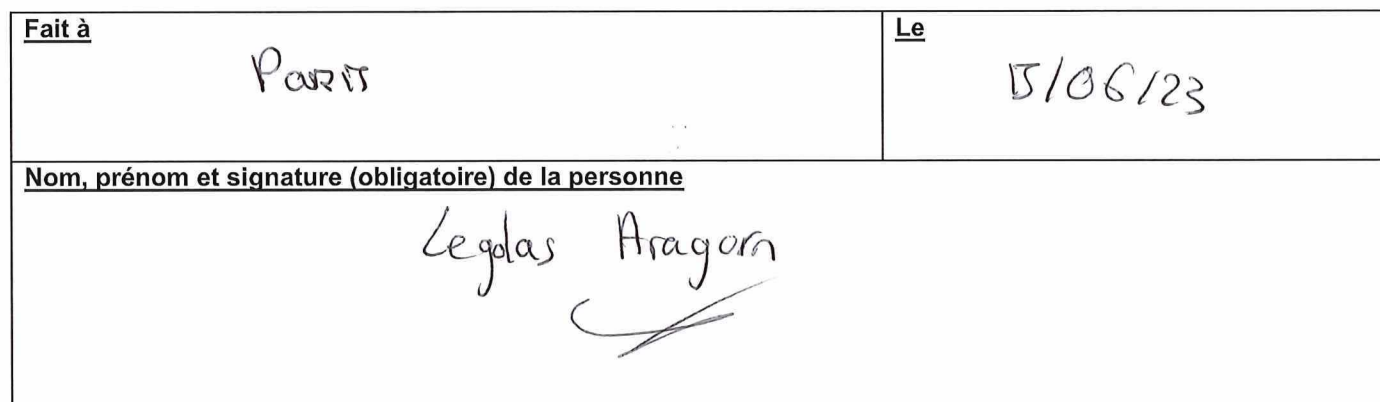 Fait à
Paris
Le
15/06/23
Nom, prénom et signature (obligatoire) de la personne
Legolas Aragorn